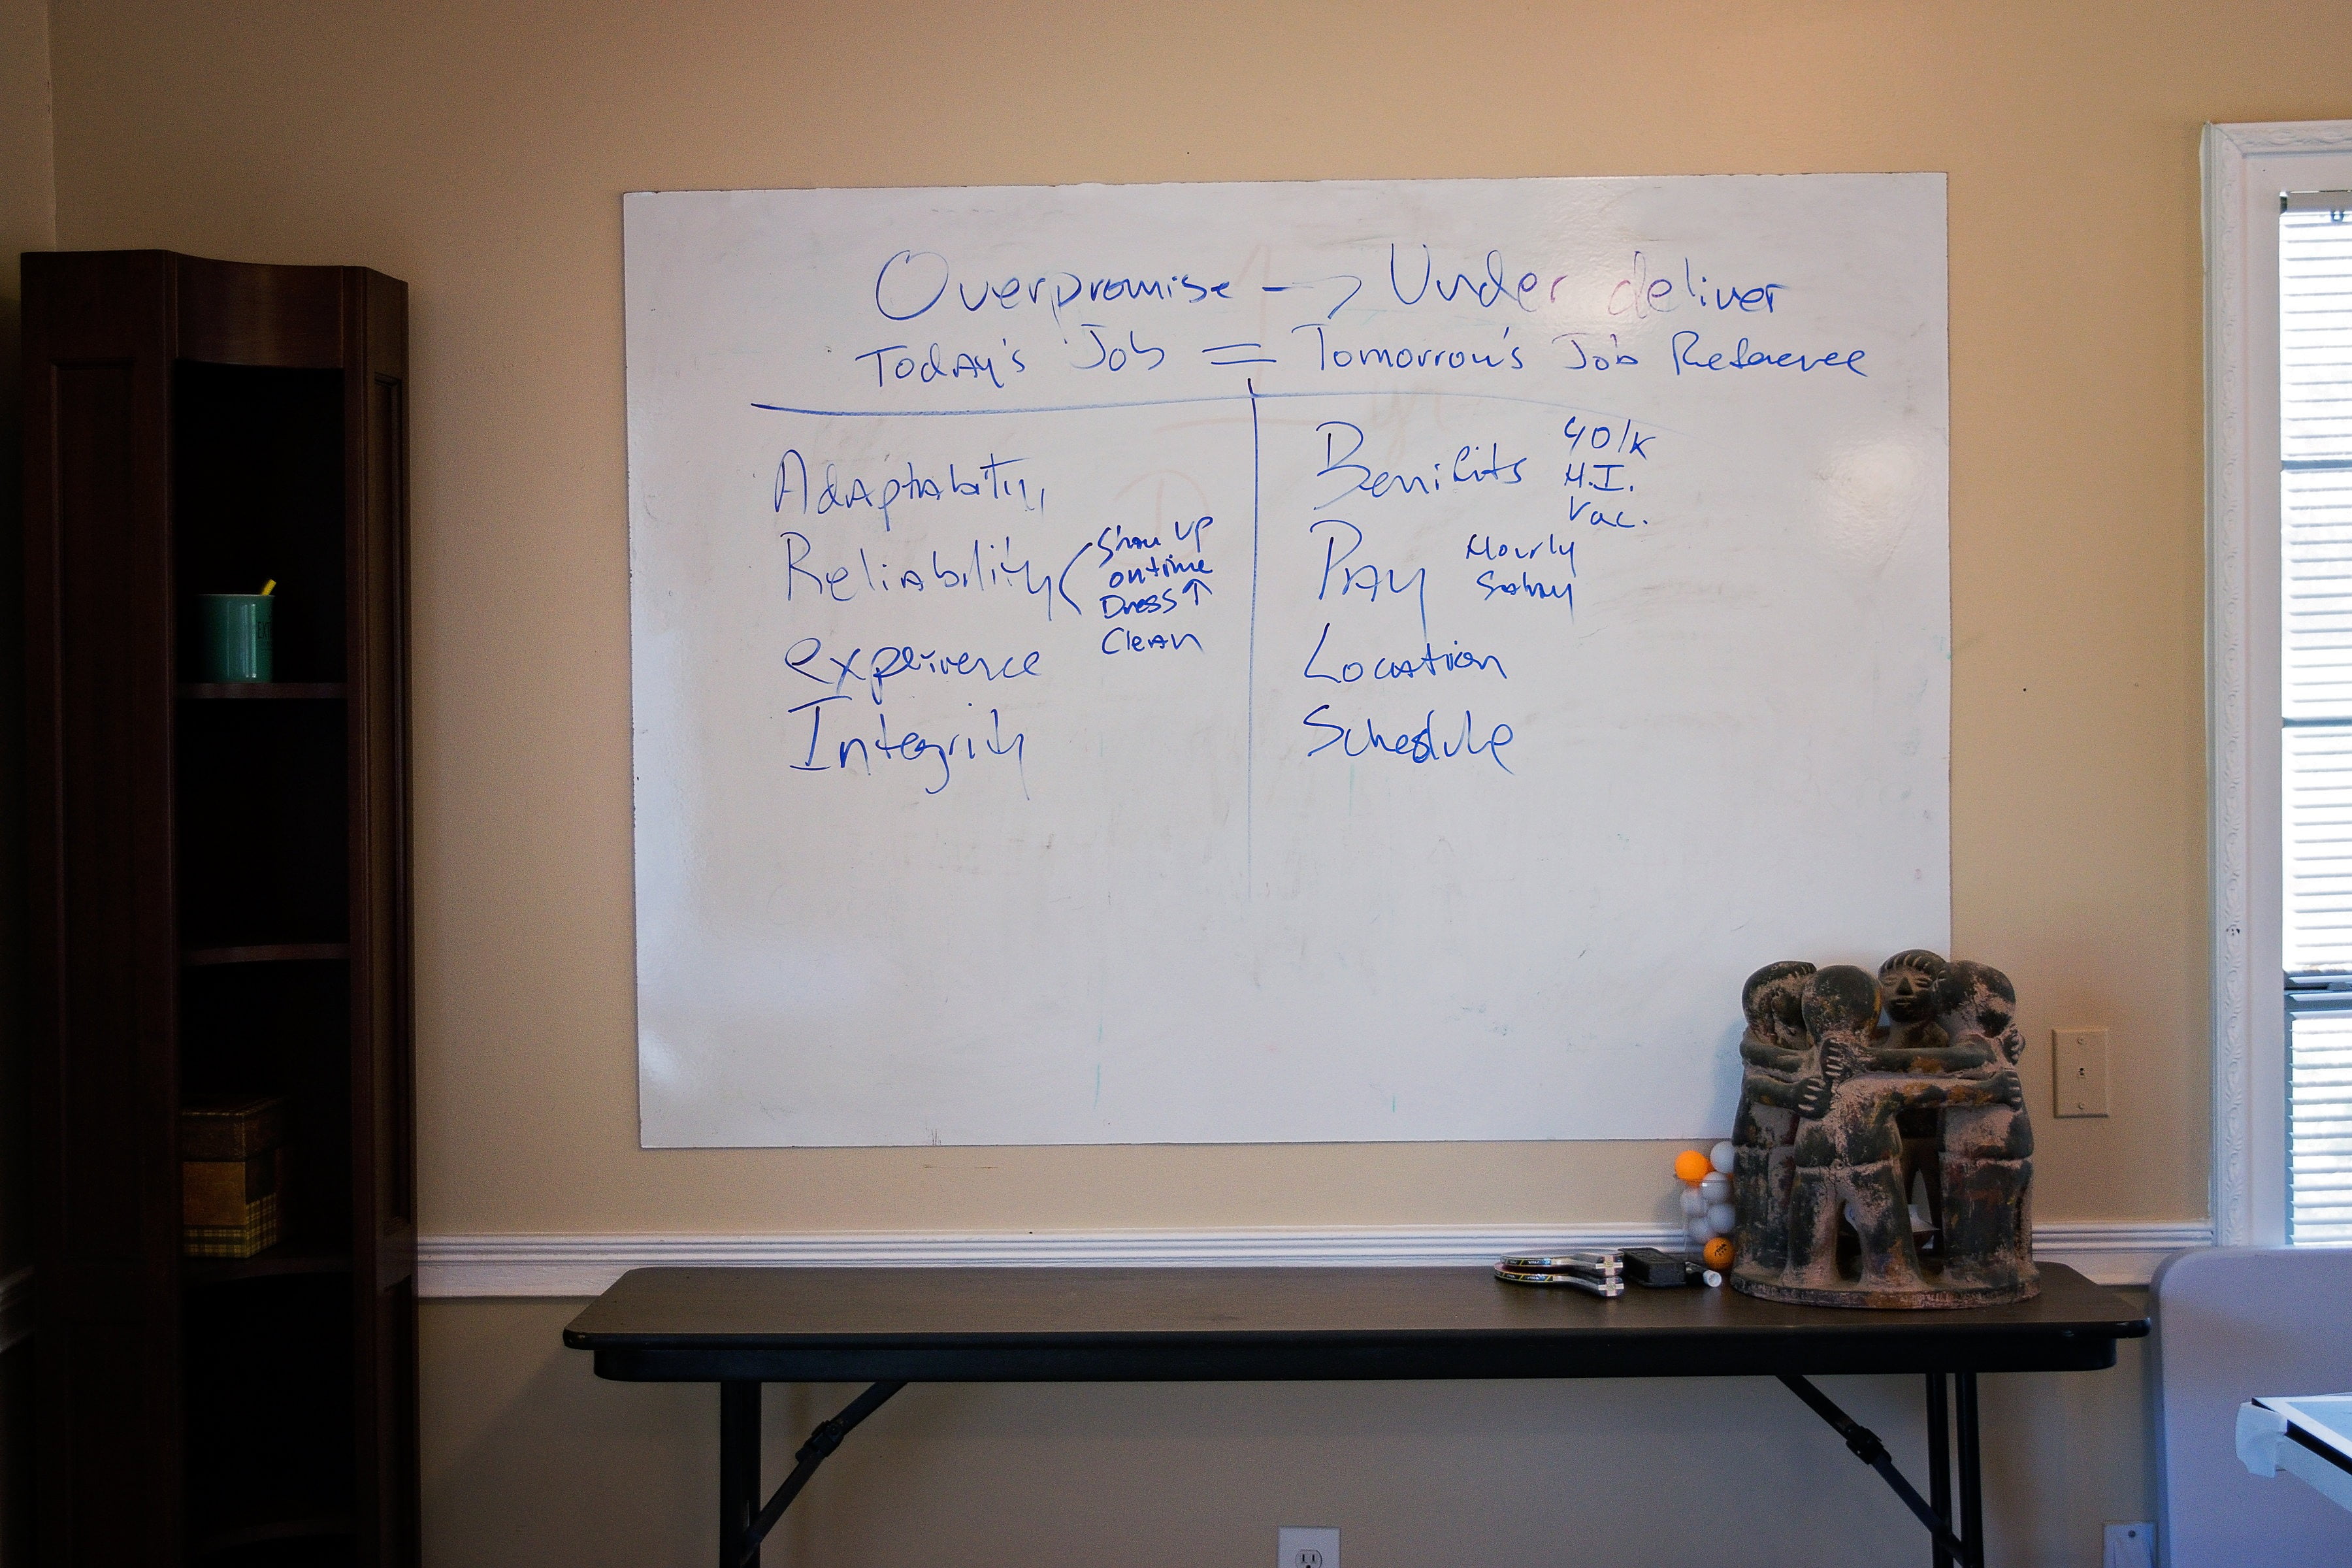 Overpromise -> Under deliver
Today's Job = Tomorrow's Job Reference
Adaptability
Reliability
Show up
ontime
Dress ↑
Clean
experience
Integrity
Benifits
401k
H.I.
Vac.
Pay
Hourly
Salary
Location
Schedule